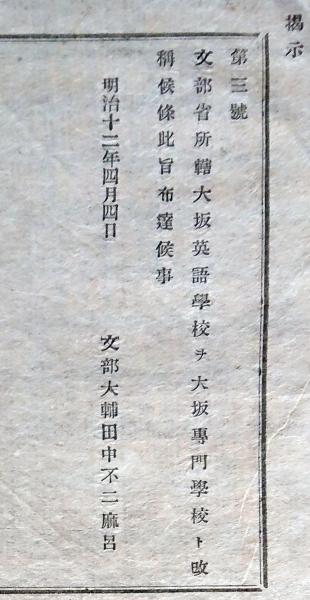 揭示
第三號
文部省所轄大坂英語學校ヲ大坂專門學校ト改
稱候條此旨布達候事
明治十二年四月四日　文部大輔田中不二麻呂